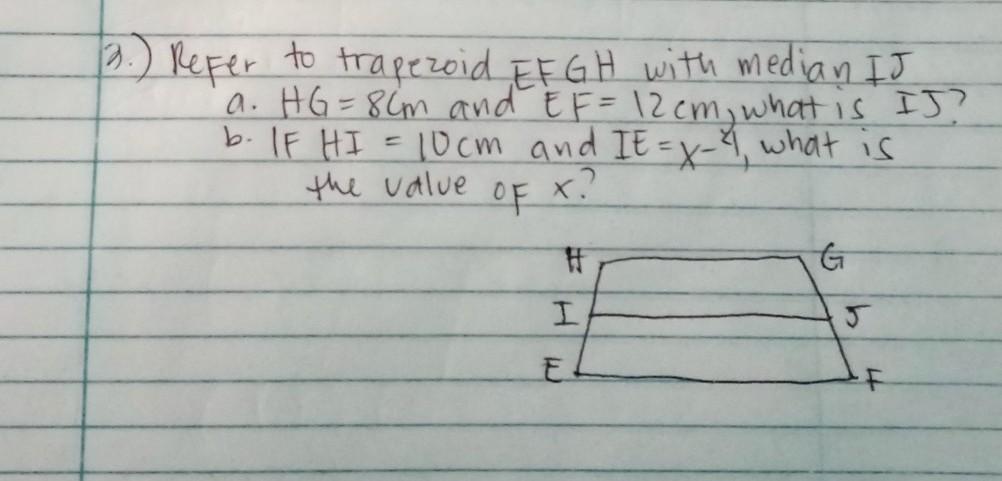 2.) Refer to trapezoid EFGH with median IJ
a. HG = 8cm and EF = 12cm, what is IJ?
b. IF HI = 10cm and IE = x-4, what is
the value of x?
H G
I J
E F